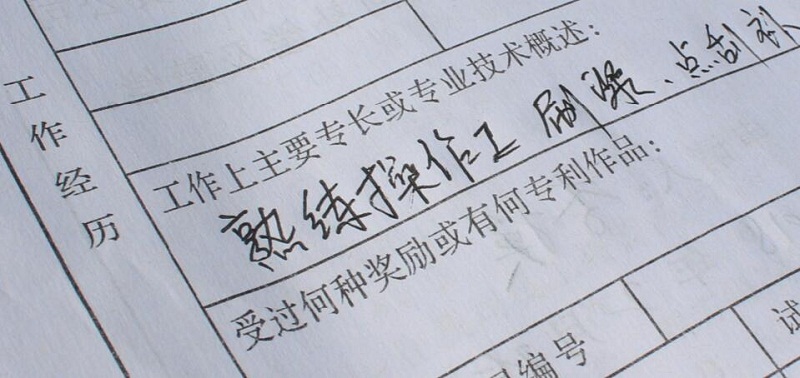 工作经历
工作上主要专长或专业技术概述：
熟练操作工 刷浆、点刮补
受过何种奖励或有何专利作品：
编号
试